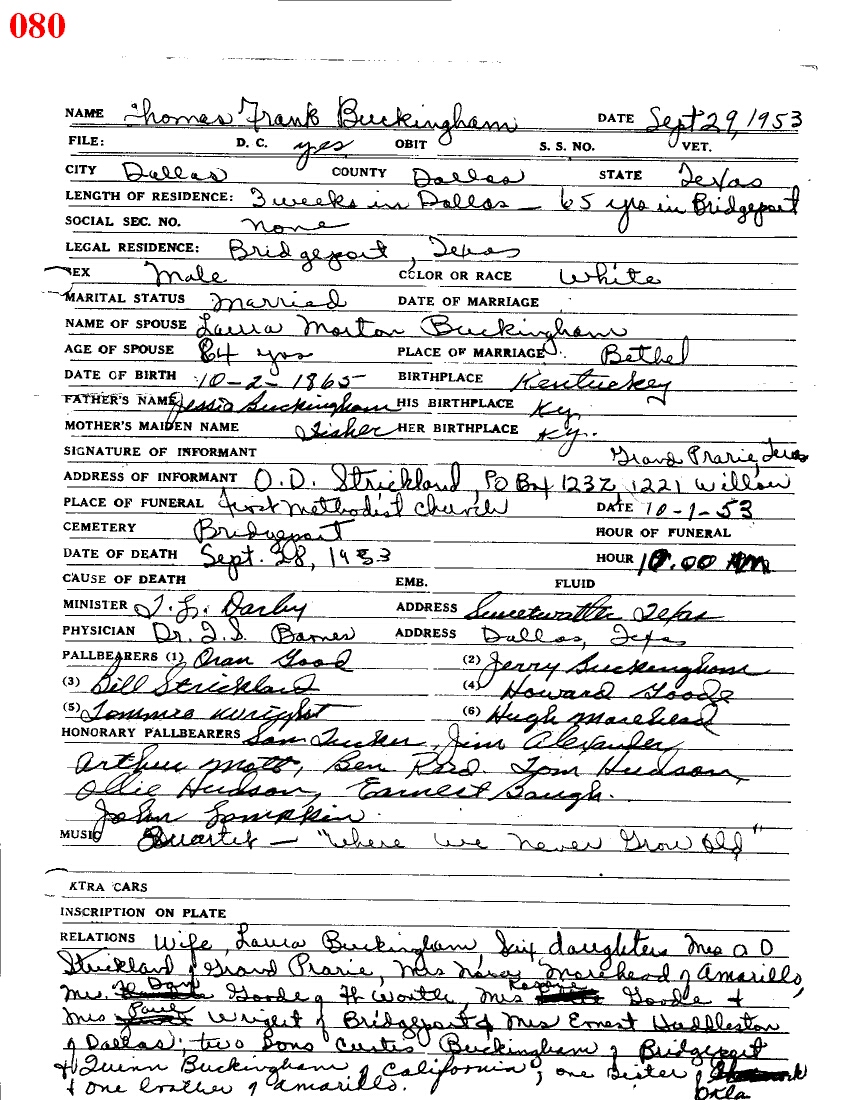 080
NAME Thomas Frank Buckingham DATE Sept 29, 1953
FILE: D. C. yes OBIT S. S. NO. VET.
CITY Dallas COUNTY Dallas STATE Texas
LENGTH OF RESIDENCE: 3 weeks in Dallas — 65 yrs in Bridgeport
SOCIAL SEC. NO. none
LEGAL RESIDENCE: Bridgeport, Texas
SEX Male COLOR OR RACE White
MARITAL STATUS Married DATE OF MARRIAGE
NAME OF SPOUSE Laura Morton Buckingham
AGE OF SPOUSE 84 yrs PLACE OF MARRIAGE Bethel
DATE OF BIRTH 10-2-1865 BIRTHPLACE Kentuckey
FATHER'S NAME Jessie Buckingham HIS BIRTHPLACE Ky.
MOTHER'S MAIDEN NAME Fisher HER BIRTHPLACE Ky.
SIGNATURE OF INFORMANT Grand Prarie, Texas
ADDRESS OF INFORMANT O. D. Strickland, PO Box 1232, 1221 Willow
PLACE OF FUNERAL First Methodist Church DATE 10-1-53
CEMETERY Bridgeport HOUR OF FUNERAL
DATE OF DEATH Sept. 28, 1953 HOUR 10:00 AM
CAUSE OF DEATH EMB. FLUID
MINISTER J. L. Darby ADDRESS Sweetwatter Texas
PHYSICIAN Dr. J. S. Barnes ADDRESS Dallas, Texas
PALLBEARERS (1) Oran Good (2) Jerry Buckingham
(3) Bill Strickland (4) Howard Goode
(5) Tommie Wright (6) Hugh Morehead
HONORARY PALLBEARERS Sam Tucker, Jim Alexander,
Arthur Mott, Ben Ford. Tom Hudson,
Ollie Hudson, Earnest Baugh.
John Lampkin.
MUSIC Quartet — "Where we never Grow Old"
XTRA CARS
INSCRIPTION ON PLATE
RELATIONS Wife, Laura Buckingham, Six daughters Mrs O D
Strickland of Grand Prarie, Mrs Nova Morehead of Amarillo,
Mrs. Dan Goode of Ft Worth, Mrs Goode &
Mrs Paul Wright of Bridgeport & Mrs Ernest Huddleston
of Dallas; two sons Curtis Buckingham of Bridgeport
& Quinn Buckingham of California; one sister of
& one brother of Amarillo. Okla